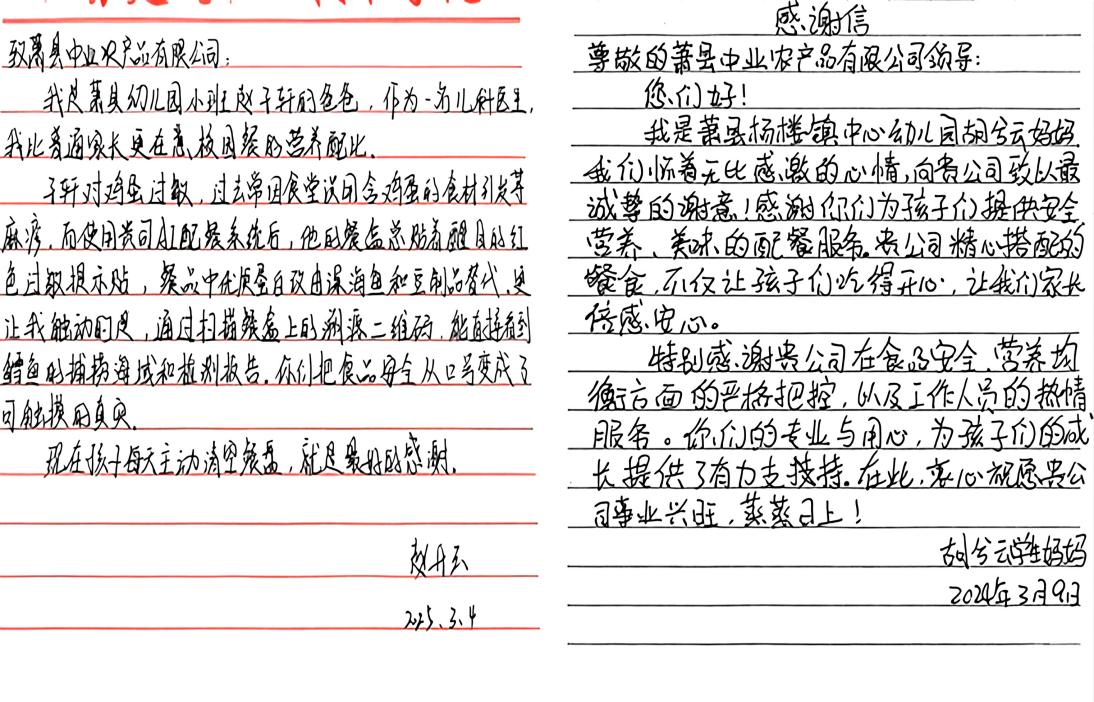 致萧县中业农产品有限公司:
我是萧县幼儿园小班赵子轩的爸爸，作为一名儿科医生,
我比普通家长更在意校园餐的营养配比.
子轩对鸡蛋过敏，过去常因食堂误用含鸡蛋的食材引发荨
麻疹，而使用贵司AI配餐系统后，他的餐盒总贴着醒目的红
色过敏提示贴，餐品中优质蛋白改由深海鱼和豆制品替代.更
让我触动的是，通过扫描餐盒上的溯源二维码，能直接看到
鳕鱼的捕捞海域和检测报告。你们把食品安全从口号变成了
可触摸的真实.
现在孩子每天主动清空餐盘，就是最好的感谢.
2025.3.4
感谢信
尊敬的萧县中业农产品有限公司领导:
您们好!
我是萧县杨楼镇中心幼儿园胡兮云妈妈.
我们怀着无比感激的心情,向贵公司致以最
诚挚的谢意!感谢你们为孩子们提供安全
营养、美味的配餐服务。贵公司精心搭配的
餐食，不仅让孩子们吃得开心，让我们家长
倍感安心。
特别感谢贵公司在食品安全、营养均
衡方面的严格把控，以及工作人员的热情
服务。你们的专业与用心，为孩子们的成
长提供了有力支持。在此，衷心祝愿贵公
司事业兴旺，蒸蒸日上!
胡兮云学生妈妈
2024年3月9日